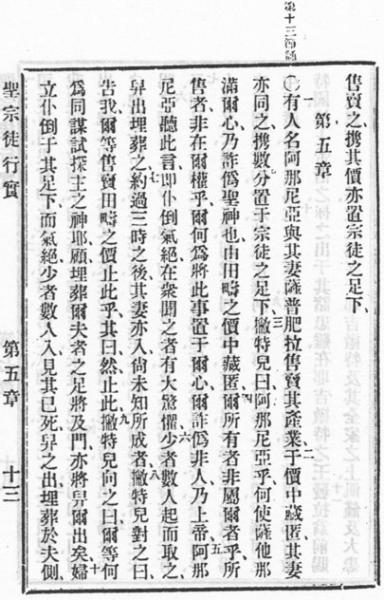 第十三節註
售賣之、携其價亦置宗徒之足下、
第五章
一有人名阿那尼亞與其妻薩普肥拉售賣其產業、二于價中藏匿、其妻
亦同之、携數分置于宗徒之足下、三撇特兒曰、阿那尼亞乎、何使薩他那
滿爾心、乃詐爲聖神也、由田疇之價中藏匿、四爾所有者非屬爾者乎、所
售者非在爾權乎、爾何爲將此事置于爾心、爾詐爲非人、乃上帝、五阿那
尼亞聽此言、即仆倒氣絕、在衆聞之者有大驚懼、六少者數人起而取之、
舁出埋葬之、七約過三時之後、其妻亦入、尚未知所成者、八撇特兒對之曰、
告我、爾等售賣田疇之價止此乎、其曰、然止此、九撇特兒向之曰、爾等何
爲同謀試探主之神耶、顧埋葬爾夫者之足將及門、亦將舁爾出矣、十婦
立仆倒于其足下、而氣絕、少者數人入、見其已死、舁之出、埋葬於夫側、
聖宗徒行實 第五章 十三